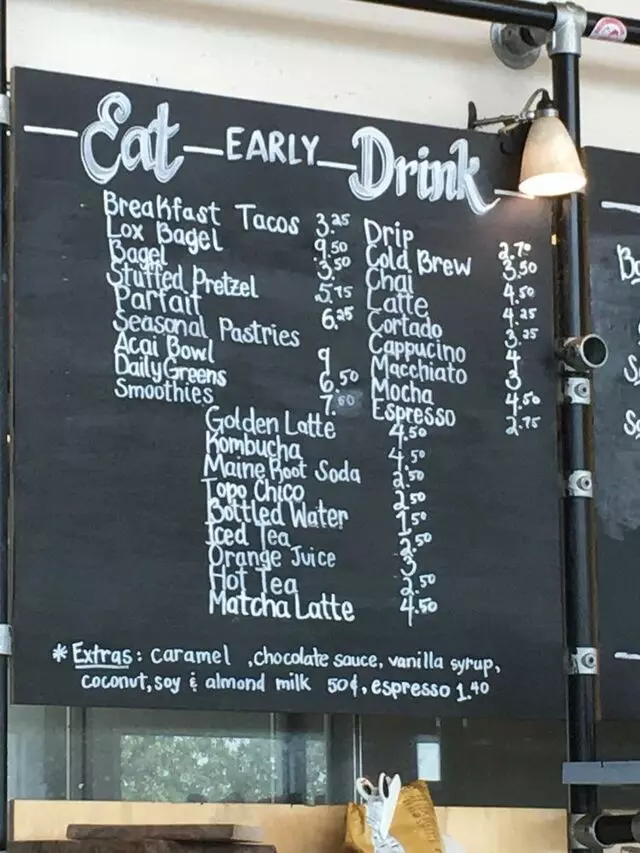 Eat EARLY Drink
Breakfast Tacos 3.25
Lox Bagel 9.50
Bagel 3.50
Stuffed Pretzel 5.75
Parfait 6.25
Seasonal Pastries
Acai Bowl 9
Daily Greens 6.50
Smoothies 7.50
Drip 2.70
Cold Brew 3.50
Chai 4.50
Latte 4.25
Cortado 3.25
Cappucino 4
Macchiato 3
Mocha 4.50
Espresso 2.75
Golden Latte 4.50
Kombucha 4.50
Maine Root Soda 2.50
Topo Chico 2.50
Bottled Water 1.50
Iced Tea 2.50
Orange Juice 3
Hot Tea 2.50
Matcha Latte 4.50
* Extras: caramel , chocolate sauce, vanilla syrup,
coconut, soy & almond milk 50¢, espresso 1.40